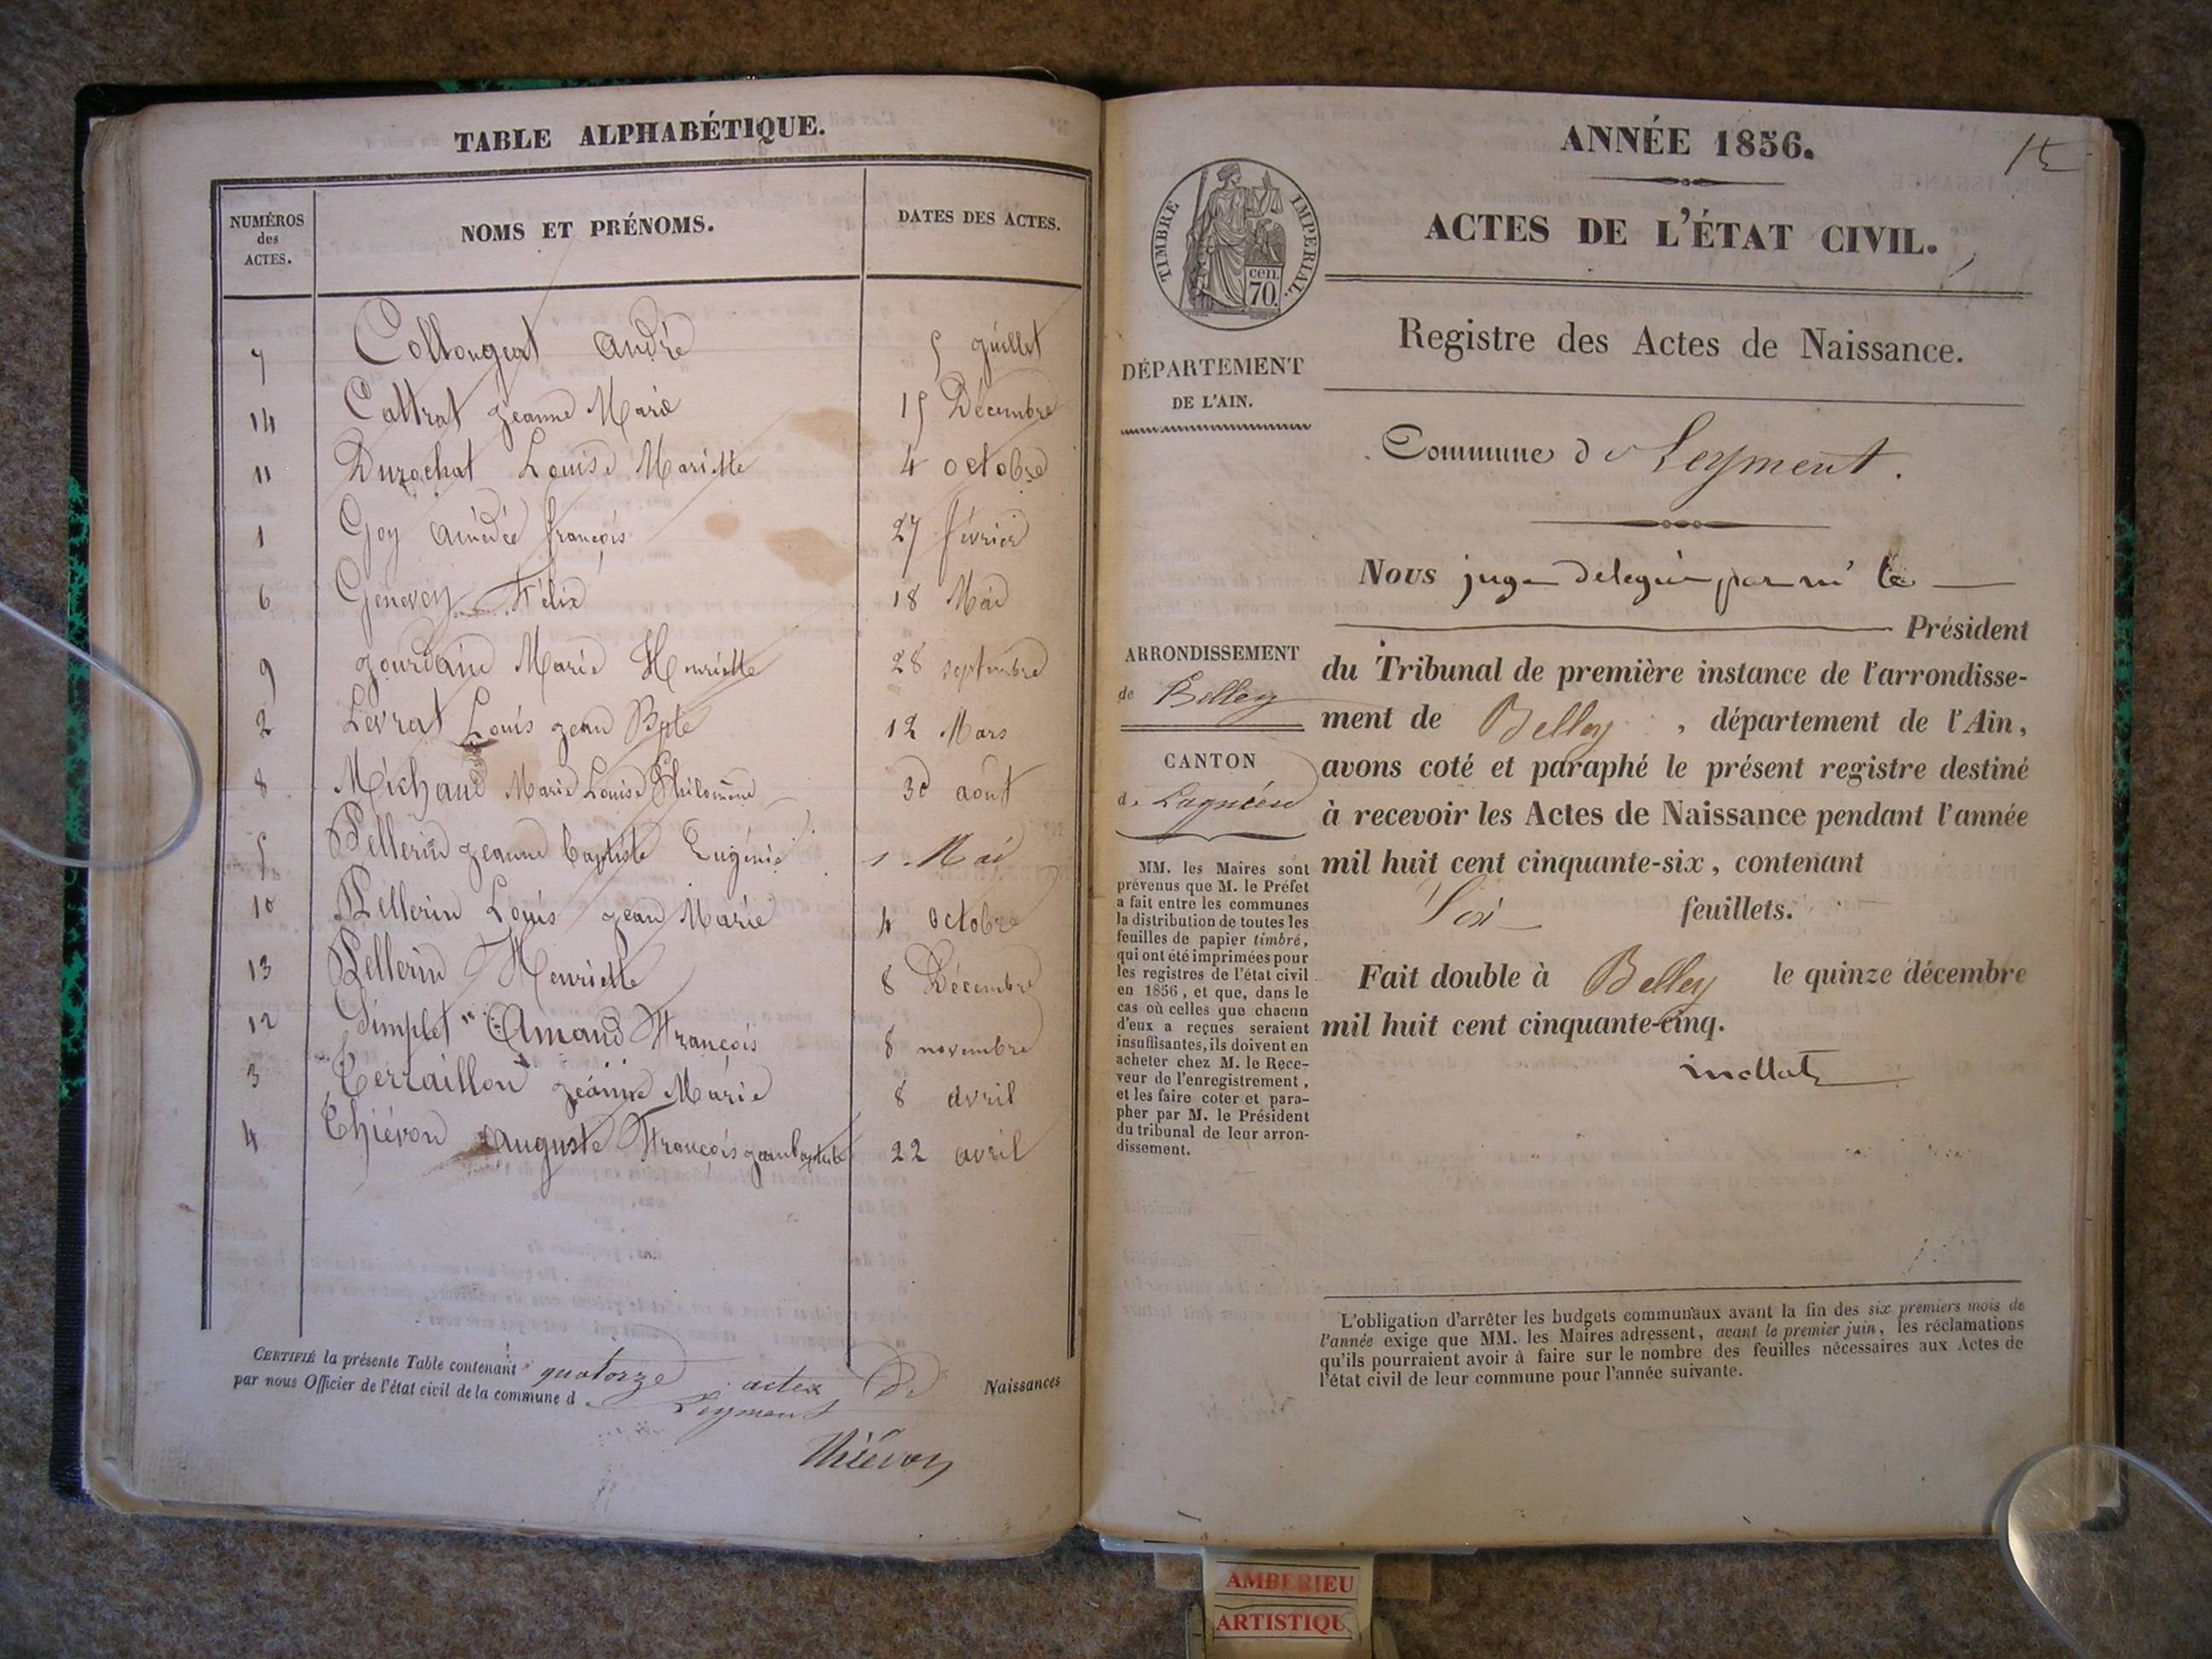 TABLE ALPHABÉTIQUE.
NUMÉROS
des
ACTES.
NOMS ET PRÉNOMS.
DATES DES ACTES.
7 Collongeat André 5 juillet
14 Cattrat Jeanne Marie 15 Décembre
11 Durochat Louise Mariette 4 octobre
1 Goy Amédée françois 27 février
6 Genevey Félix 18 Mai
9 Jourdain Marie Henriette 28 septembre
2 Levrat Louis Jean Bpte 12 Mars
8 Michaud Marie Louise Philomène 30 août
5 Pellerin Jeanne baptiste Eugénie 1 Mai
10 Pellerin Louis Jean Marie 4 octobre
13 Pellerin Henriette 8 Décembre
12 Simplet Amand François 8 novembre
3 Terraillon Jeanne Marie 8 avril
4 Thiévon Auguste François Jean baptiste 22 avril
CERTIFIÉ la présente Table contenant quatorze actes de Naissances
par nous Officier de l'état civil de la commune d Leyment
Thiévon
ANNÉE 1856.
ACTES DE L'ÉTAT CIVIL.
TIMBRE IMPERIAL.
cen.
70.
Registre des Actes de Naissance.
DÉPARTEMENT
DE L'AIN.
Commune de Leyment.
Nous juge delegué par mr le
Président
du Tribunal de première instance de l'arrondisse-
ment de Belley, département de l'Ain,
avons coté et paraphé le présent registre destiné
à recevoir les Actes de Naissance pendant l'année
mil huit cent cinquante-six, contenant
Six feuillets.
Fait double à Belley le quinze décembre
mil huit cent cinquante-cinq.
ARRONDISSEMENT
de Belley
CANTON
de Lagnieu
MM. les Maires sont
prévenus que M. le Préfet
a fait entre les communes
la distribution de toutes les
feuilles de papier timbré,
qui ont été imprimées pour
les registres de l'état civil
en 1856, et que, dans le
cas où celles que chacun
d'eux a reçues seraient
insuffisantes, ils doivent en
acheter chez M. le Rece-
veur de l'enregistrement,
et les faire coter et para-
pher par M. le Président
du tribunal de leur arron-
dissement.
L'obligation d'arrêter les budgets communaux avant la fin des six premiers mois de
l'année exige que MM. les Maires adressent, avant le premier juin, les réclamations
qu'ils pourraient avoir à faire sur le nombre des feuilles nécessaires aux Actes de
l'état civil de leur commune pour l'année suivante.
AMBERIEU
ARTISTIQU